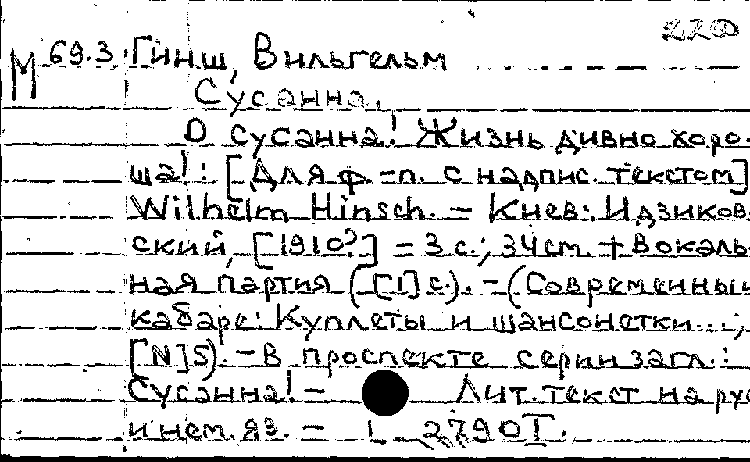 220
М 69.3 Гинш, Вильгельм
Сусанна.
О Сусанна! Жизнь дивно хоро-
ша! : [Для ф.-п. с надпис. текстом]
Wilhelm Hinsch. – Киев: Идзиков-
ский, [1910?] – 3 с.; 34 cm. + Вокаль-
ная партия ([1] с.). – (Современный
кабаре: Куплеты и шансонетки...;
[N]5). – В проспекте серии загл.:
Сусанна! – Лит. текст на рус
и нем. яз. – 2790 I.